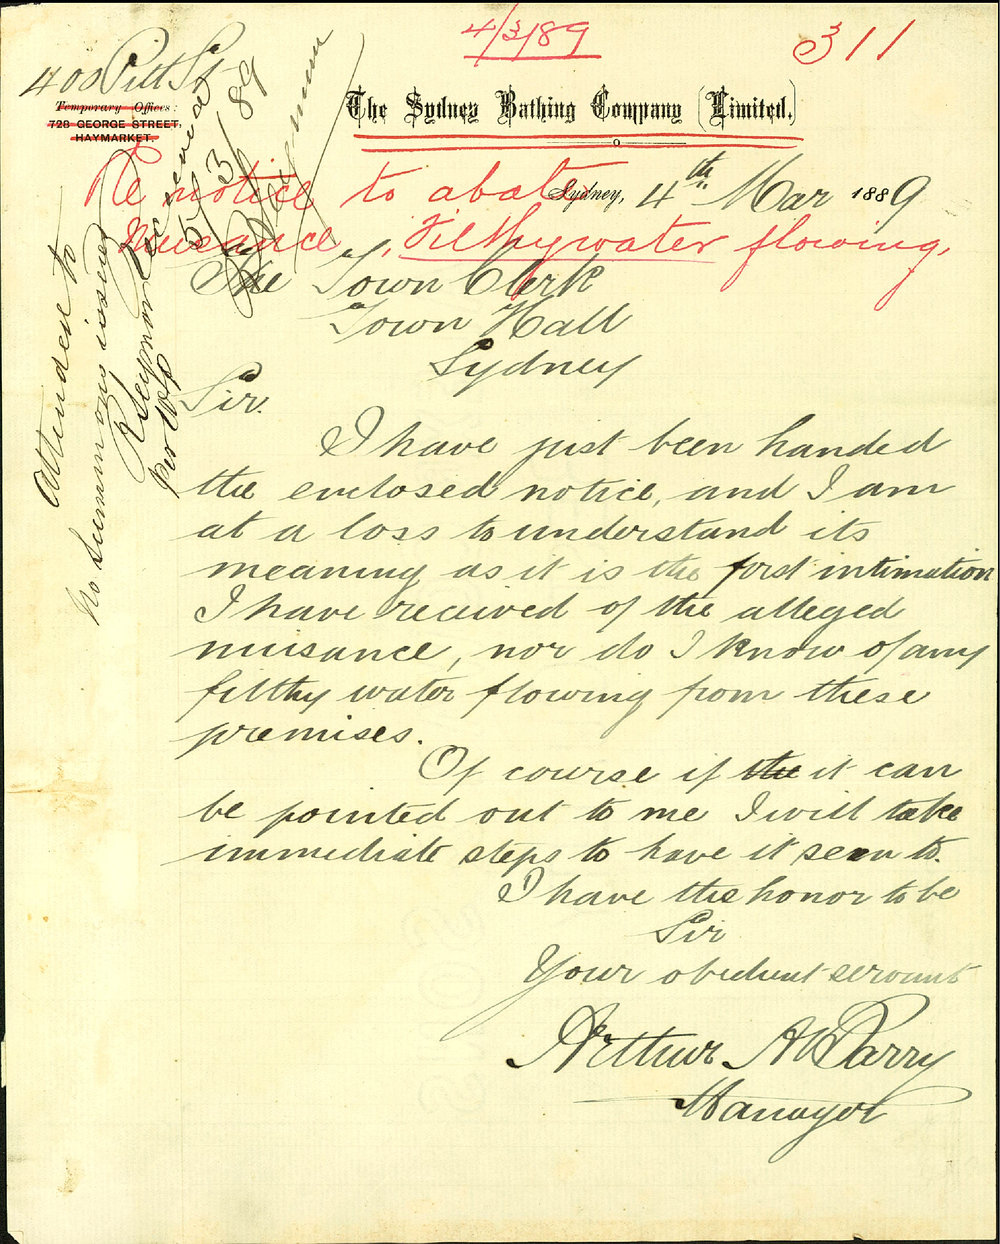 4/3/89
311
400 Pitt St
Temporary Offices:
728 GEORGE STREET,
HAYMARKET.
The Sydney Bathing Company (Limited.)
Re notice to abate
Nuisance, Filthy water flowing.
Sydney, 4th Mar 1889
The Town Clerk
Town Hall
Sydney
Sir.
I have just been handed
the enclosed notice, and I am
at a loss to understand its
meaning as it is the first intimation
I have received of the alleged
nuisance, nor do I know of any
filthy water flowing from these
premises.
Of course if the it can
be pointed out to me I will take
immediate steps to have it seen to.
I have the honor to be
Sir
Your obedient servant
Arthur H Parry
Manager
Attended to
no summons issued
R Seymour
per
received
5/3/89
R Seymour